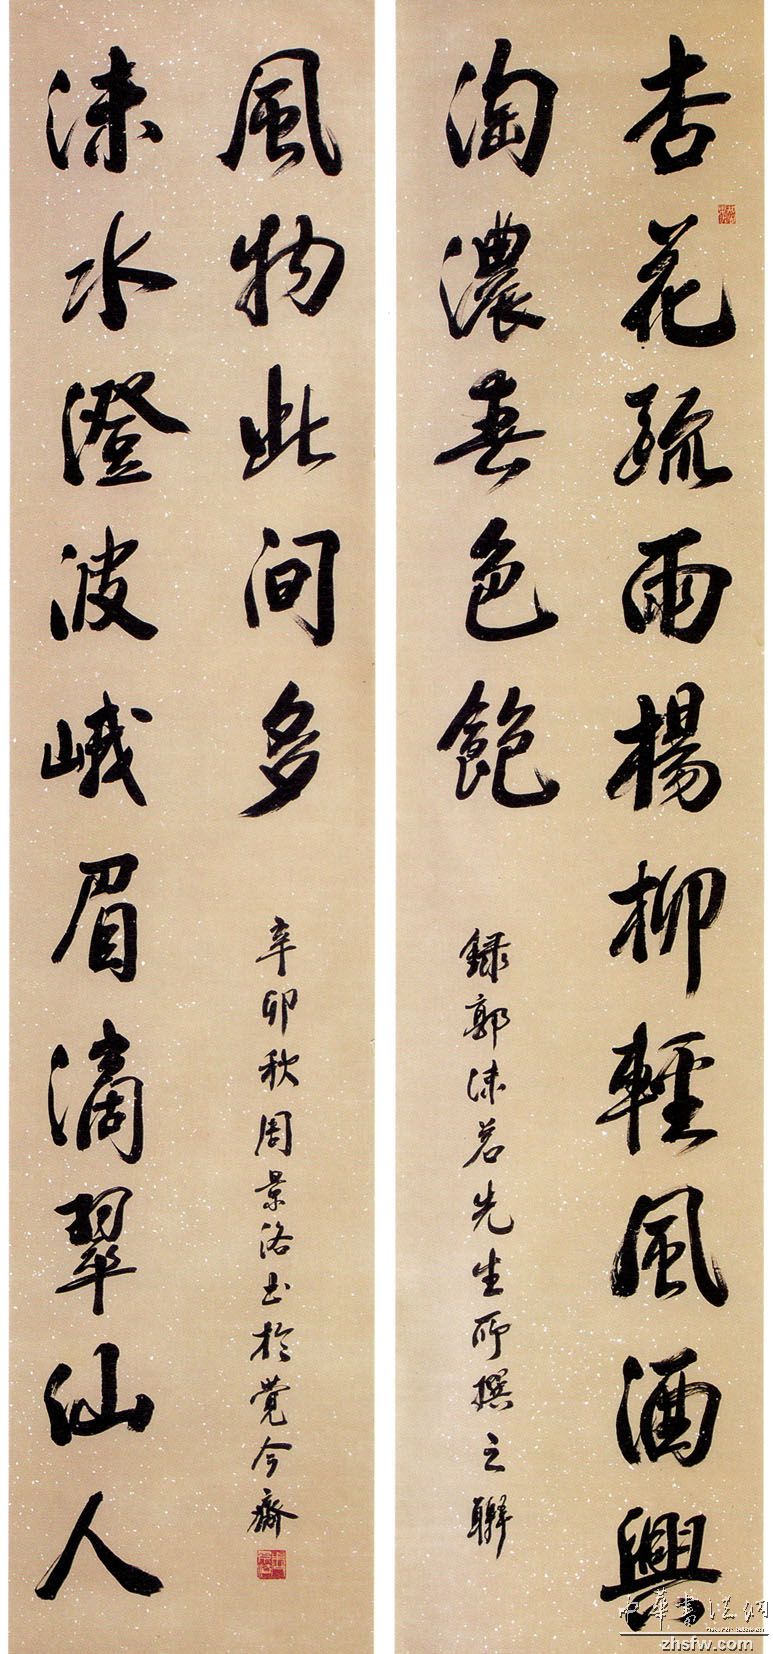 杏花疏雨楊柳輕風酒興
淘濃春色飽
録郭沫若先生所撰之聯
沫水澄波峨眉滴翠仙人
風物此间多
辛卯秋周景洛书於覺今齋
中華書法網
zhsfw.com